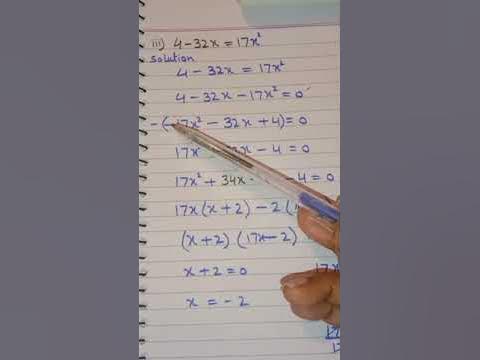 iii) 4-32x = 17x²
Solution
4 - 32x = 17x²
4 - 32x - 17x² = 0
-(-17x² - 32x + 4) = 0
17x - 4 = 0
17x² + 34x - 4 = 0
17x(x+2) - 2(
(x+2) (17x-2)
x+2 = 0
17x
x = -2